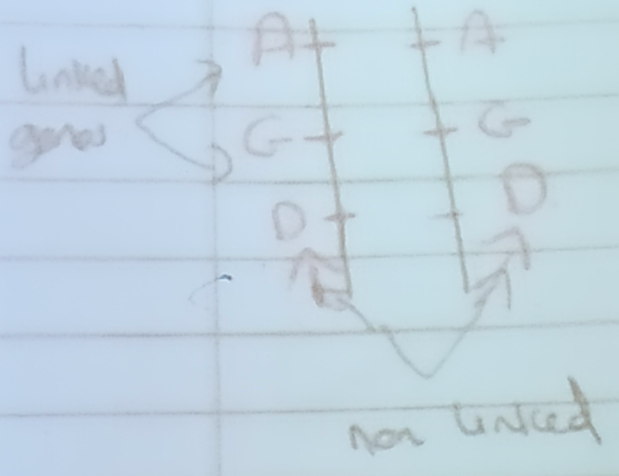 A A
Linked
genes
G G
D D
non linked